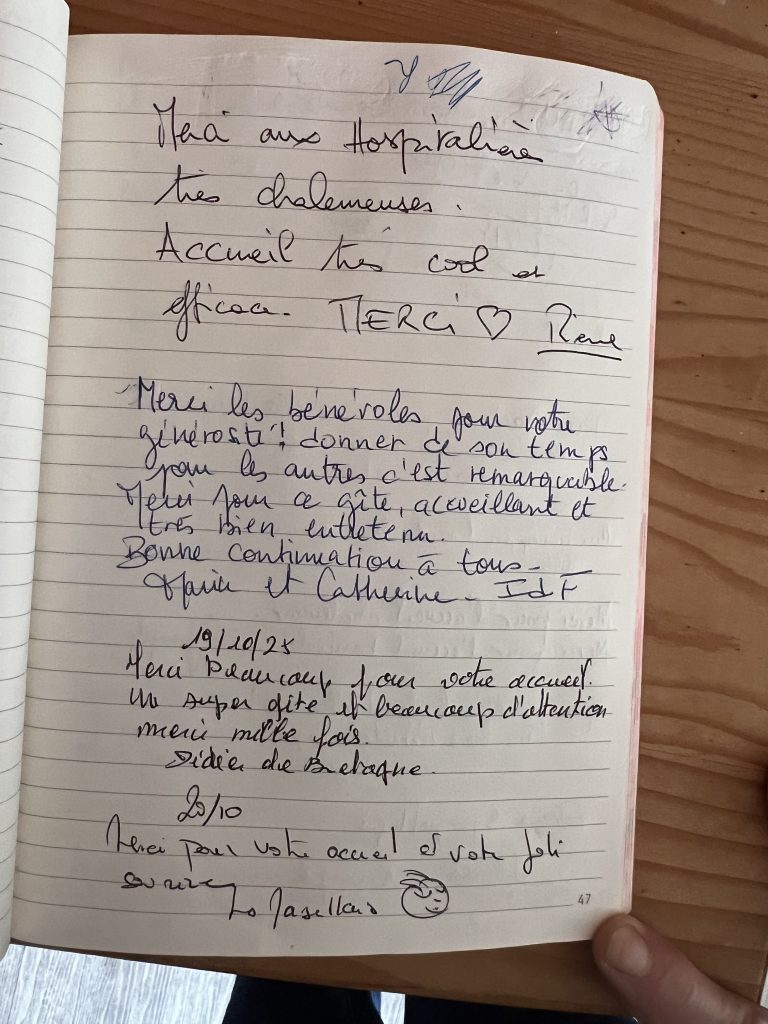 Merci aux Hospitalières
très chaleureuses.
Accueil très cool et
efficace. MERCi ♡
Merci les bénévoles pour votre
générosité! donner de son temps
pour les autres c'est remarquable.
Merci pour ce gîte, accueillant et
très bien entretenu.
Bonne continuation à tous -
Marie et Catherine - IdF
19/10/25
Merci beaucoup pour votre accueil.
Un super gite et beaucoup d'attention
merci mille fois.
Didier de Bretagne.
20/10
Merci pour votre accueil et votre joli
sourire
47